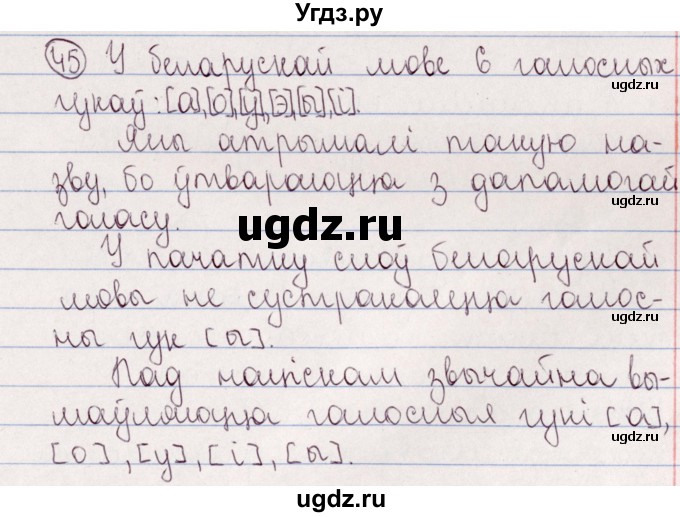 Угдз.ру
45 У беларускай мове 6 галосных
гукаў: [а],[о],[у],[э],[ы],[і].
Яны атрымалі такую на-
зву, бо ўтвараюцца з дапамогай
голасу.
У пачатку слоў беларускай
мовы не сустракаецца галос-
ны гук [ы].
Пад націскам звычайна вы-
маўляюцца галосныя гукі [а],
[о], [у], [і], [ы].
ugdz.ru
ugdz.ru
ugdz.ru
ugdz.ru
ugdz.ru
ugdz.ru